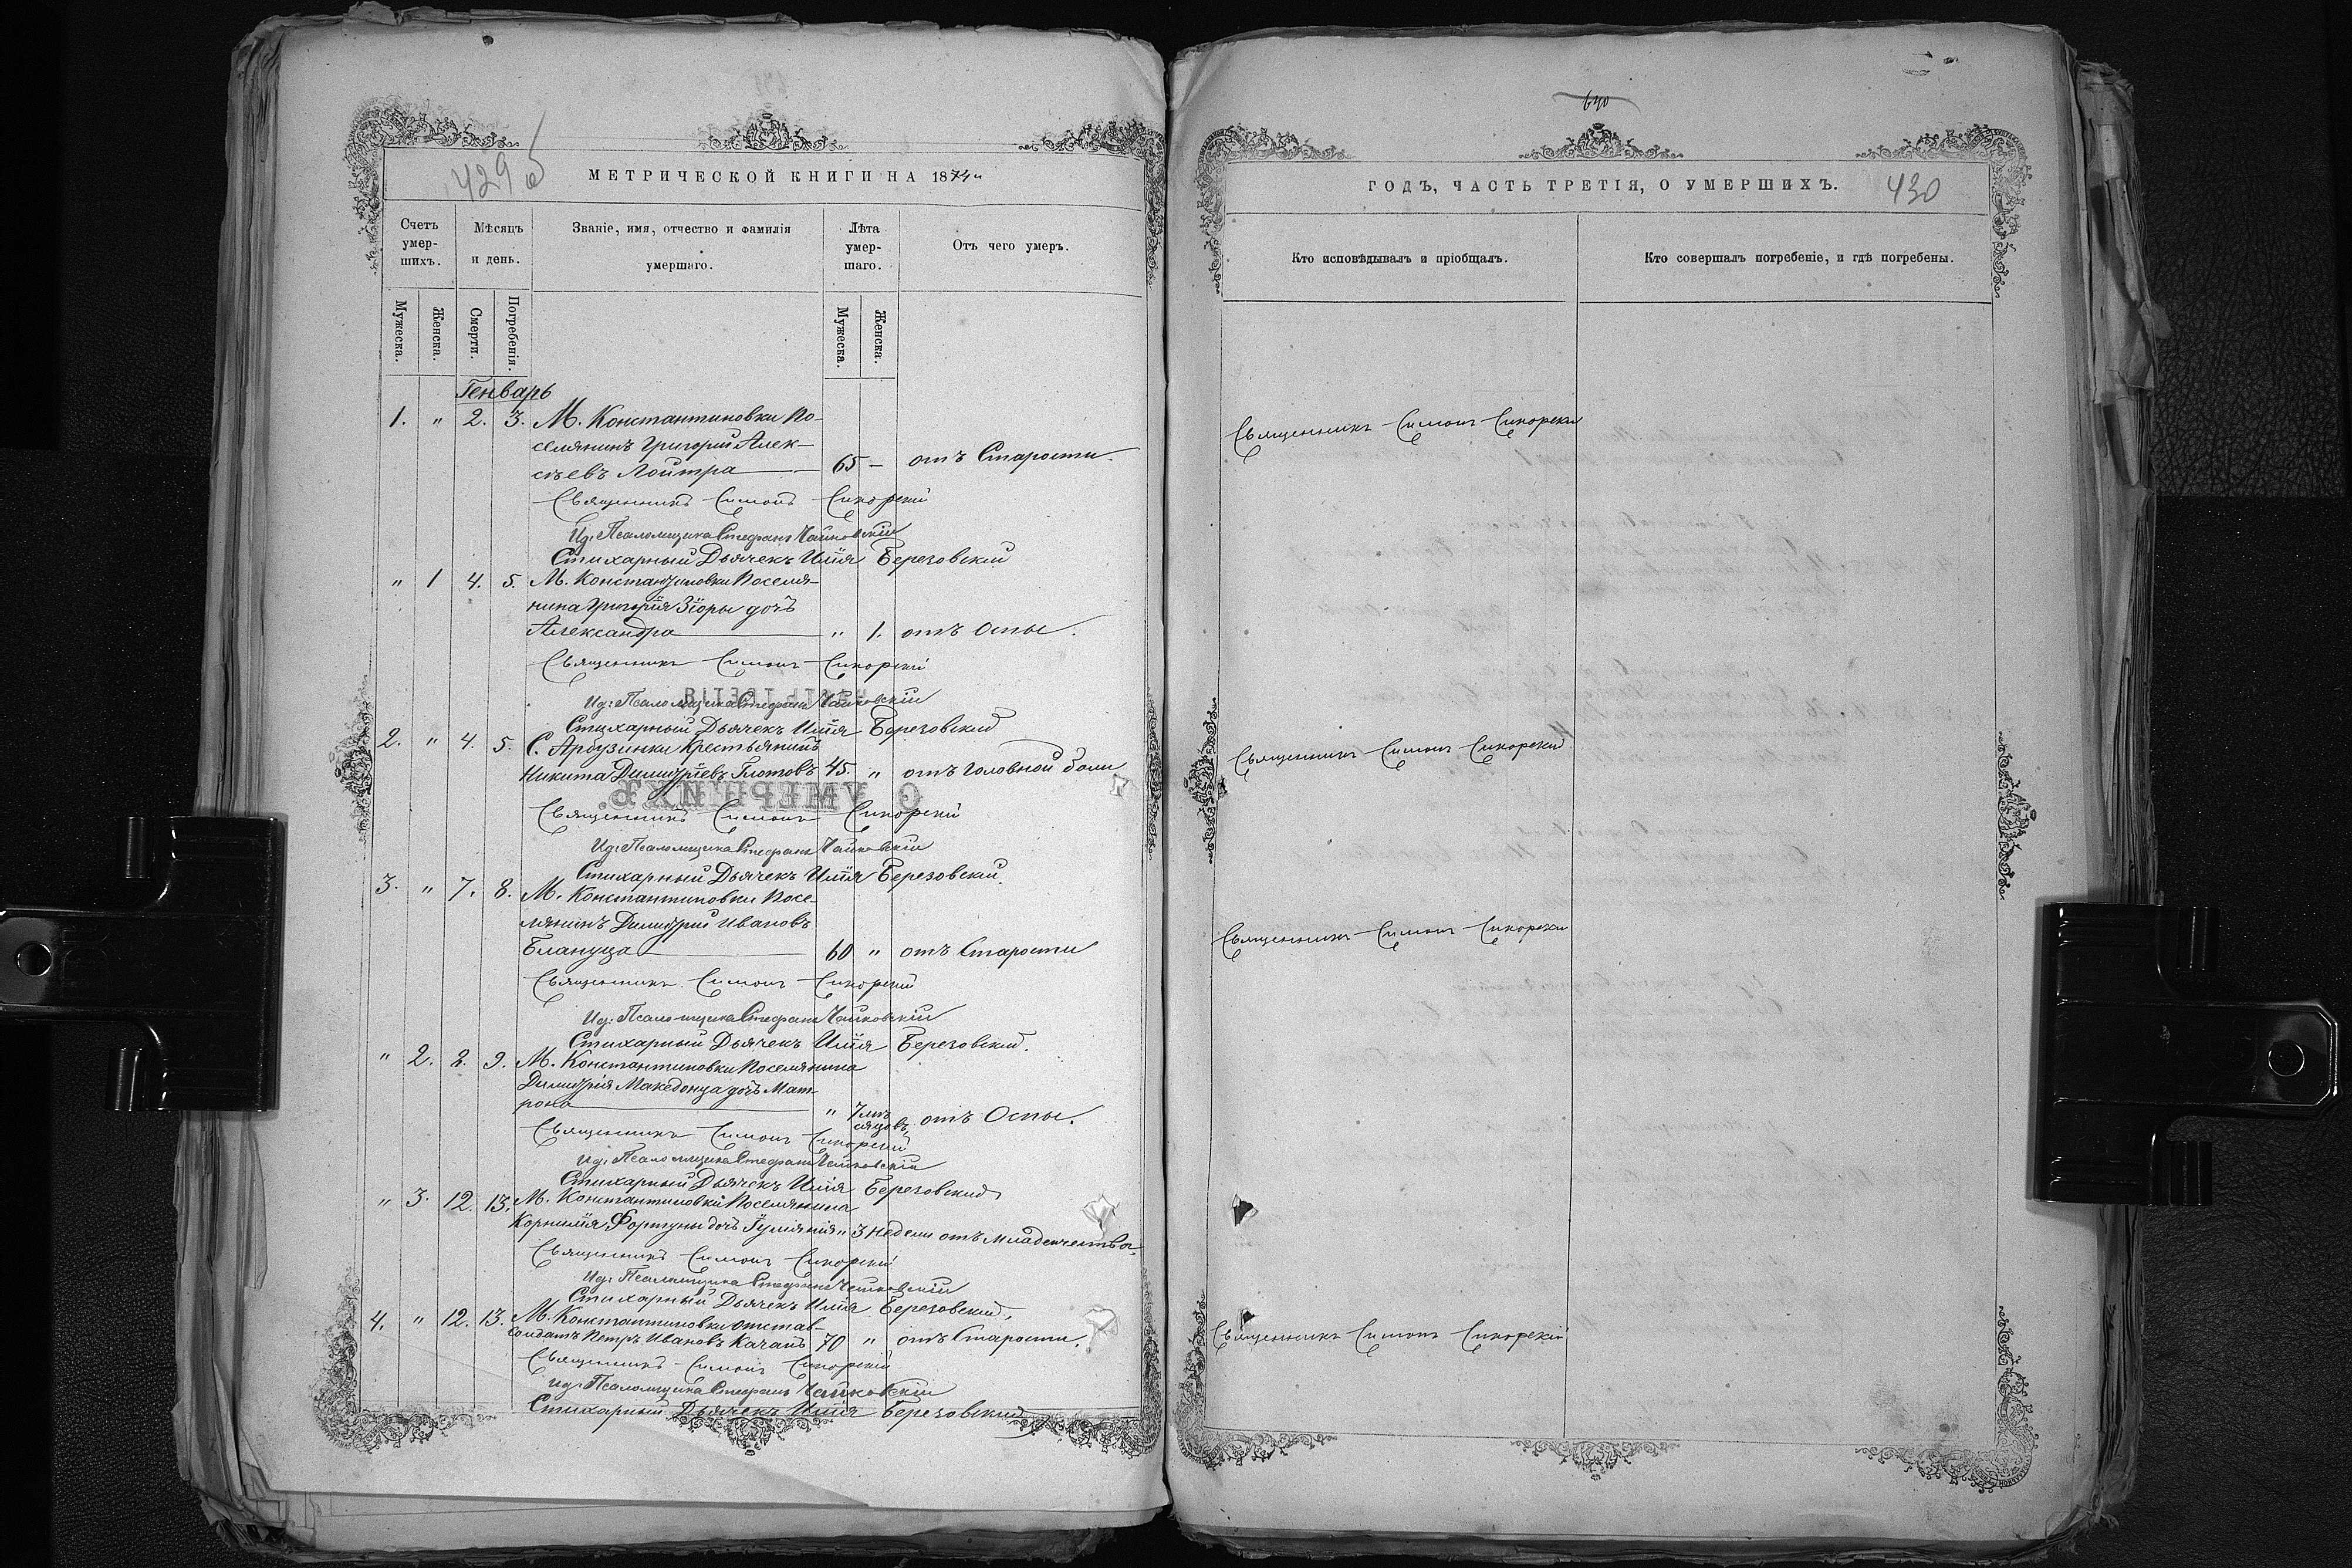 429 б
МЕТРИЧЕСКОЙ КНИГИ НА 1874
Счетъ умершихъ.
Мѣсяцъ и день.
Званіе, имя, отчество и фамилія умершаго.
Лѣта умершаго.
Отъ чего умеръ.
Мужеска.
Женска.
Смерти.
Погребенія.
Мужеска.
Женска.
Генварь
1. " 2. 3. М. Константиновки По-
селянинъ Григорій Алек-
сѣевъ Лойтра 65 – отъ Старости.
Священникъ Симонъ Сикорскій
Ид. Псаломщика Стефанъ Чайковскій
Стихарный Дьячекъ Илія Березовскій
" 1 4. 5. М. Константиновки Поселя-
нина Григорія Зїоры дочь
Александра " 1. отъ Оспы.
Священникъ Симонъ Сикорскій
Ид: Псаломщика Стефанъ Чайковскій
Стихарный Дьячекъ Илія Березовскій
2. " 4. 5. С. Арбузинки Крестьянинъ
Никита Димитріевъ Глотовъ 45. " отъ головной боли
Священникъ Симонъ Сикорскій
Ид: Псаломщика Стефанъ Чайковскій
Стихарный Дьячекъ Илія Березовскій.
3. " 7. 8. М. Константиновки Посе-
лянинъ Димитрій Ивановъ
Блануца 60 " отъ Старости
Священникъ Симонъ Сикорскій
Ид: Псаломщика Стефанъ Чайковскій
Стихарный Дьячекъ Илія Березовскій.
" 2. 8. 9. М. Константиновки Поселянина
Димитрія Македонца дочь Мат-
рона " 7 мѣ-
сяцовъ отъ Оспы.
Священникъ Симонъ Сикорскій
Ид: Псаломщика Стефанъ Чайковскій
Стихарный Дьячекъ Илія Березовскій
" 3. 12. 13. М. Константиновки Поселянина
Корнилія Фортуны дочь Іуліянія " 3 недели отъ младенчества
Священникъ Симонъ Сикорскій
Ид: Псаломщика Стефанъ Чайковскій
Стихарный Дьячекъ Илія Березовскій.
4. " 12. 13. М. Константиновки отстав-
Солдатъ Петръ Ивановъ Качанъ 70 " отъ Старости.
Священникъ Симонъ Сикорскій
Ид: Псаломщика Стефанъ Чайковскій
Стихарный Дьячекъ Илія Березовскій
ГОДЪ, ЧАСТЬ ТРЕТІЯ, О УМЕРШИХЪ.
430
Кто исповѣдывалъ и пріобщалъ.
Кто совершалъ погребеніе, и гдѣ погребены.
Священникъ Симонъ Сикорскій
Священникъ Симонъ Сикорскій
Священникъ Симонъ Сикорскій
Священникъ Симонъ Сикорскій